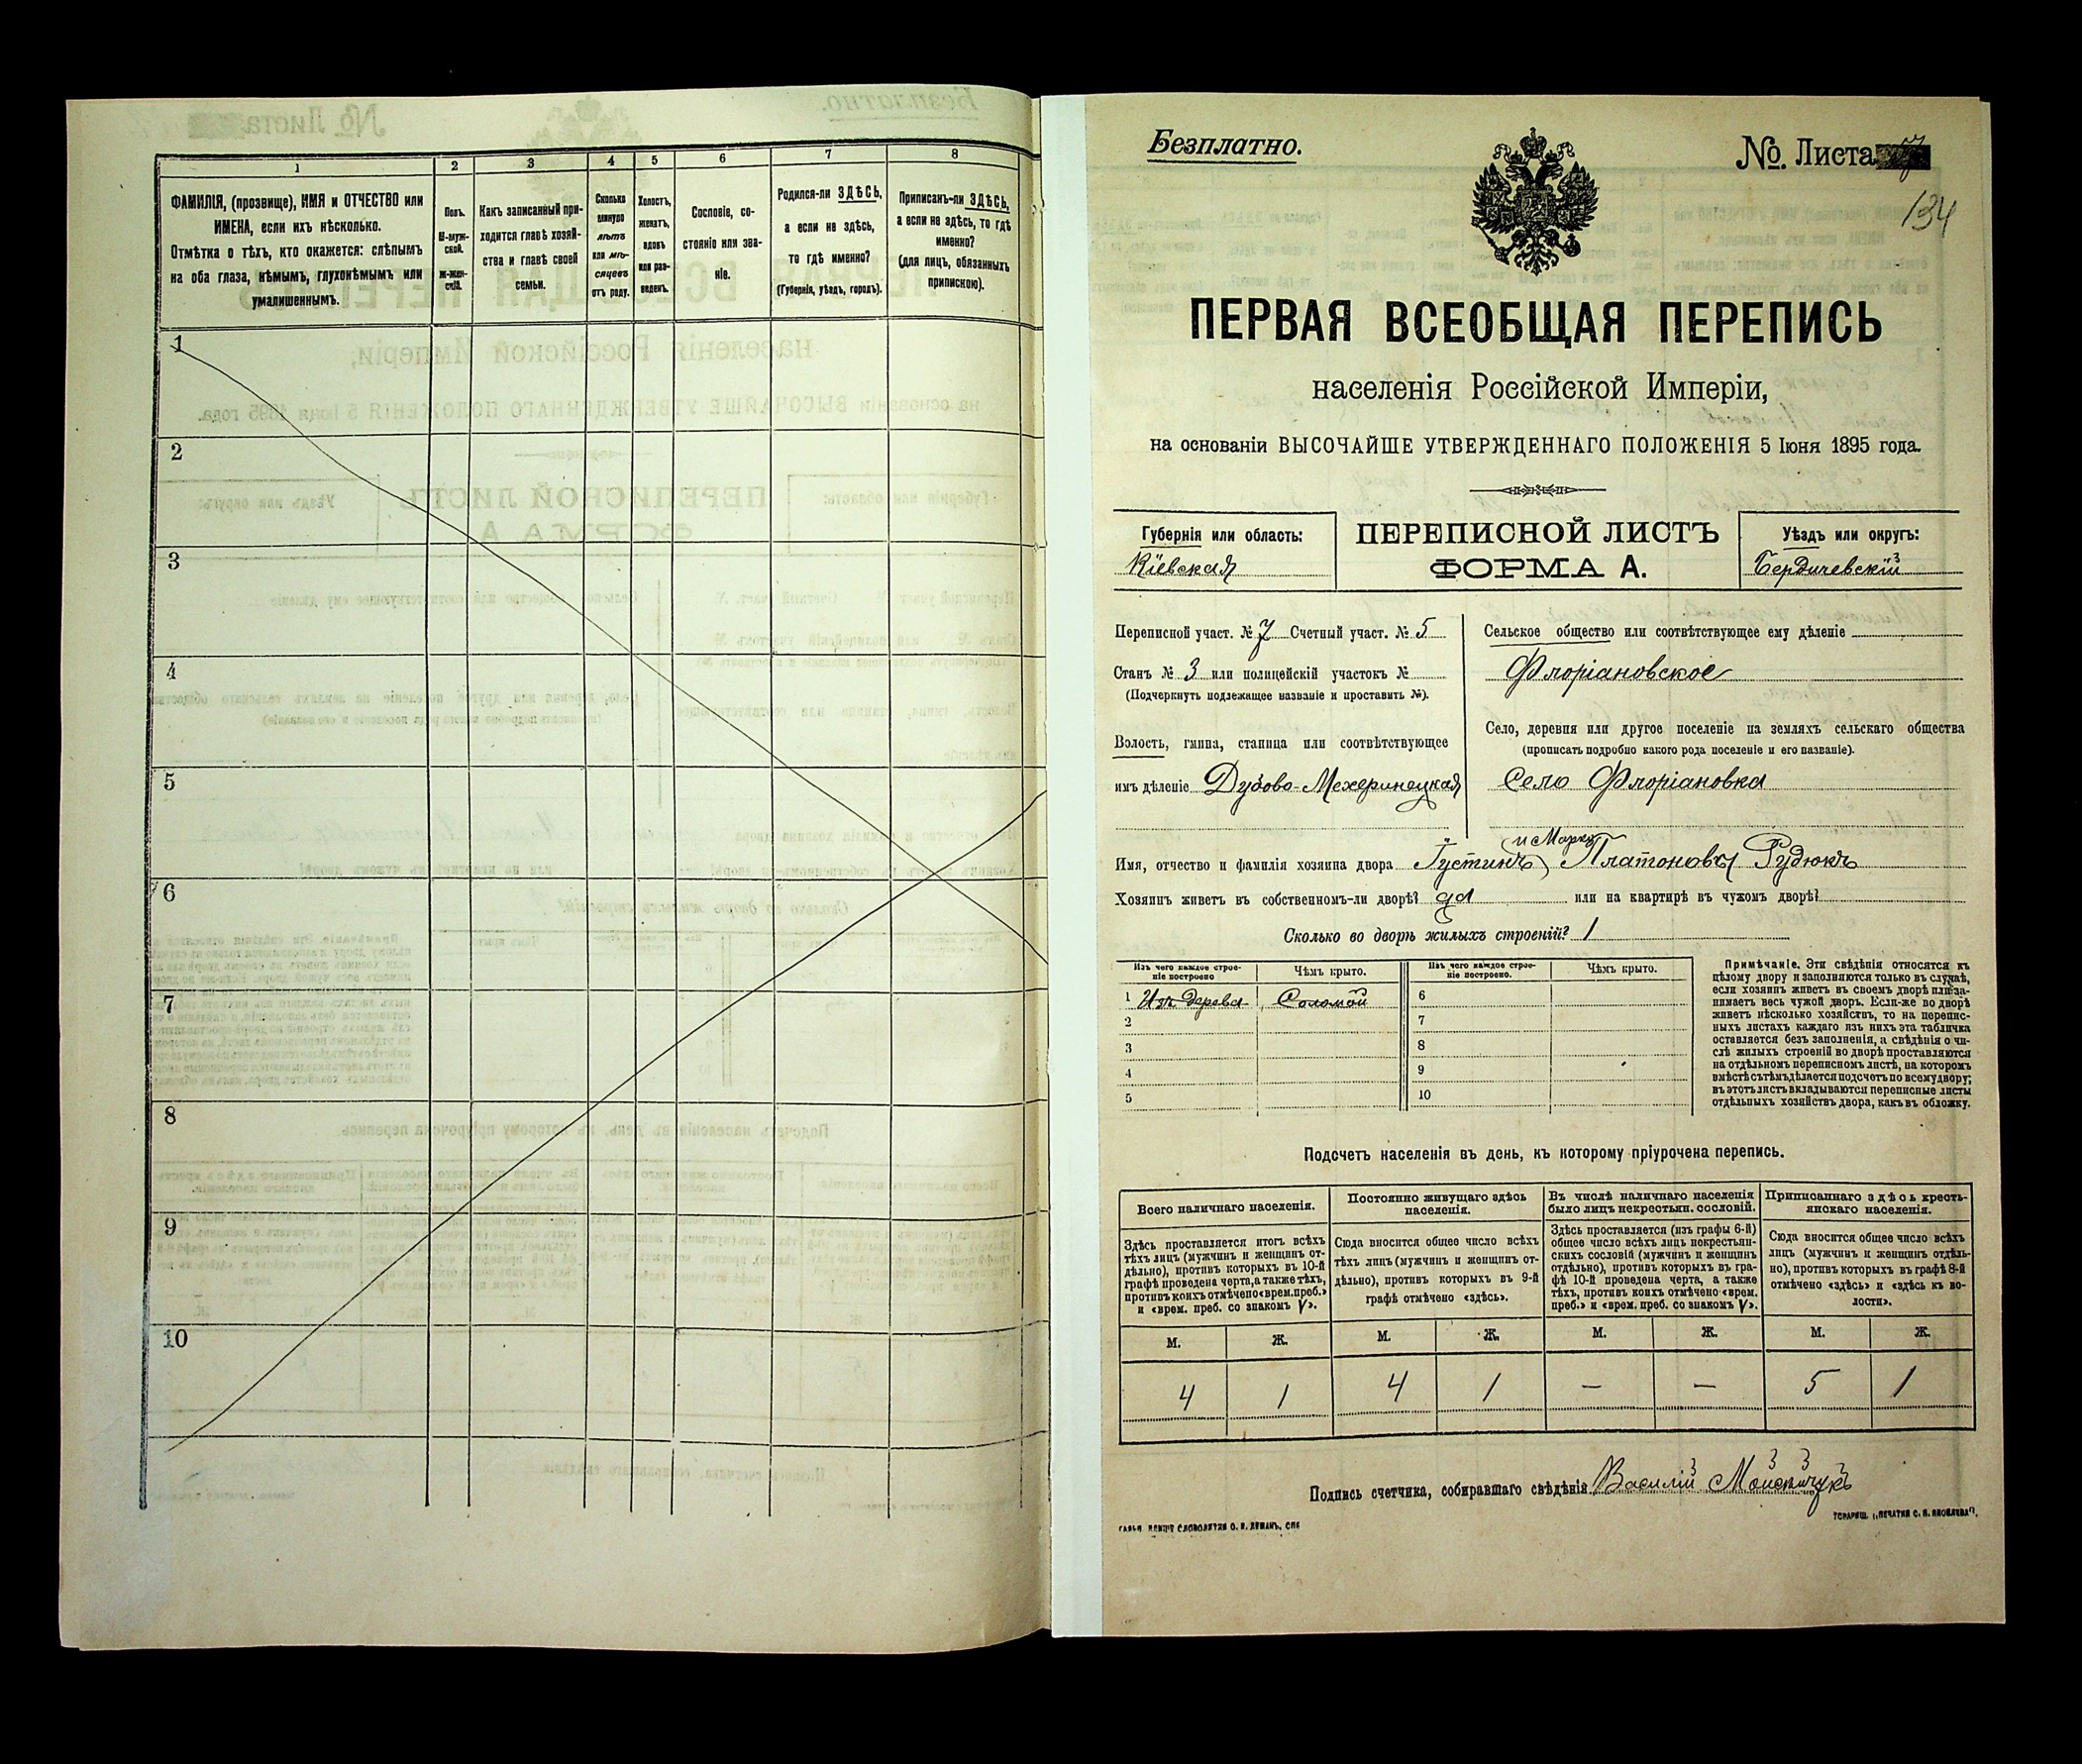 1 2 3 4 5 6 7 8
ФАМИЛІЯ, (прозвище), ИМЯ и ОТЧЕСТВО или
ИМЕНА, если ихъ нѣсколько.
Отмѣтка о тѣхъ, кто окажется: слѣпымъ
на оба глаза, нѣмымъ, глухонѣмымъ или
умалишеннымъ.
Полъ.
М-муж-
ской.
ж-жен-
скій.
Какъ записанный при-
ходится главѣ хозяй-
ства и главѣ своей
семьи.
Сколько
минуло
лѣтъ
или мѣ-
сяцевъ
отъ роду.
Холостъ,
женатъ,
вдовъ
или раз-
веденъ.
Сословіе, со-
стояніе или зва-
ніе.
Родился-ли ЗДѢСЬ,
а если не здѣсь,
то гдѣ именно?
(Губернія, уѣздъ, городъ).
Приписанъ-ли ЗДѢСЬ,
а если не здѣсь, то гдѣ
именно?
(для лицъ, обязанныхъ
припискою).
1
2
3
4
5
6
7
8
9
10
Безплатно.
№ Листа
134
ПЕРВАЯ ВСЕОБЩАЯ ПЕРЕПИСЬ
населенія Россійской Имперіи,
на основаніи ВЫСОЧАЙШЕ УТВЕРЖДЕННАГО ПОЛОЖЕНІЯ 5 Іюня 1895 года.
Губернія или область:
Кіевская
ПЕРЕПИСНОЙ ЛИСТЪ
ФОРМА А.
Уѣздъ или округъ:
Бердичевскій
Переписной участ. № 7 Счетный участ. № 5
Станъ № 3 или полицейскій участокъ №
(Подчеркнуть подлежащее названіе и проставить №).
Волость, гмина, станица или соотвѣтствующее
имъ дѣленіе Дубово-Мехеринецкая
Сельское общество или соотвѣтствующее ему дѣленіе
Флоріановское
Село, деревня или другое поселеніе на земляхъ сельскаго общества
(прописать подробно какого рода поселеніе и его названіе).
Село Флоріановка
и Марко
Имя, отчество и фамилія хозяина двора Іустинъ Платоновы Рудюкъ
Хозяинъ живетъ въ собственномъ-ли дворѣ? да или на квартирѣ въ чужомъ дворѣ?
Сколько во дворѣ жилыхъ строеній? 1
Изъ чего каждое строе-
ніе построено
Чѣмъ крыто.
Изъ чего каждое строе-
ніе построено.
Чѣмъ крыто.
1 Изъ дерева Соломой 6
2 7
3 8
4 9
5 10
Примѣчаніе. Эти свѣдѣнія относятся къ
цѣлому двору и заполняются только въ случаѣ,
если хозяинъ живетъ въ своемъ дворѣ или за-
нимаетъ весь чужой дворъ. Если-же во дворѣ
живетъ нѣсколько хозяйствъ, то на перепис-
ныхъ листахъ каждаго изъ нихъ эта табличка
оставляется безъ заполненія, а свѣдѣнія о чи-
слѣ жилыхъ строеній во дворѣ проставляются
на отдѣльномъ переписномъ листѣ, на которомъ
вмѣстѣ съ тѣмъ дѣлается подсчетъ по всему двору;
въ этотъ листъ вкладываются переписные листы
отдѣльныхъ хозяйствъ двора, какъ въ обложку.
Подсчетъ населенія въ день, къ которому пріурочена перепись.
Всего наличнаго населенія.
Постоянно живущаго здѣсь
населенія.
Въ числѣ наличнаго населенія
было лицъ некрестьян. сословій.
Приписаннаго здѣсь кресть-
янскаго населенія.
Здѣсь проставляется итогъ всѣхъ
тѣхъ лицъ (мужчинъ и женщинъ от-
дѣльно), противъ которыхъ въ 10-й
графѣ проведена черта, а также тѣхъ,
противъ коихъ отмѣчено «врем. преб.»
и «врем. преб. со знакомъ V».
Сюда вносится общее число всѣхъ
тѣхъ лицъ (мужчинъ и женщинъ от-
дѣльно), противъ которыхъ въ 9-й
графѣ отмѣчено «здѣсь».
Здѣсь проставляется (изъ графы 6-й)
общее число всѣхъ лицъ некрестьян-
скихъ сословій (мужчинъ и женщинъ
отдѣльно), противъ которыхъ въ гра-
фѣ 10-й проведена черта, а также
тѣхъ, противъ коихъ отмѣчено «врем.
преб.» и «врем. преб. со знакомъ V».
Сюда вносится общее число всѣхъ
лицъ (мужчинъ и женщинъ отдѣль-
но), противъ которыхъ въ графѣ 8-й
отмѣчено «здѣсь» и «здѣсь къ во-
лости».
М. Ж. М. Ж. М. Ж. М. Ж.
4 1 4 1 — — 5 1
Подпись счетчика, собиравшаго свѣдѣнія Василій
СЛОВОЛИТНЯ О. И. ЛЕМАНЪ, СПБ
ТОВАРИЩ. „ПЕЧАТНЯ С. П. ЯКОВЛЕВА".